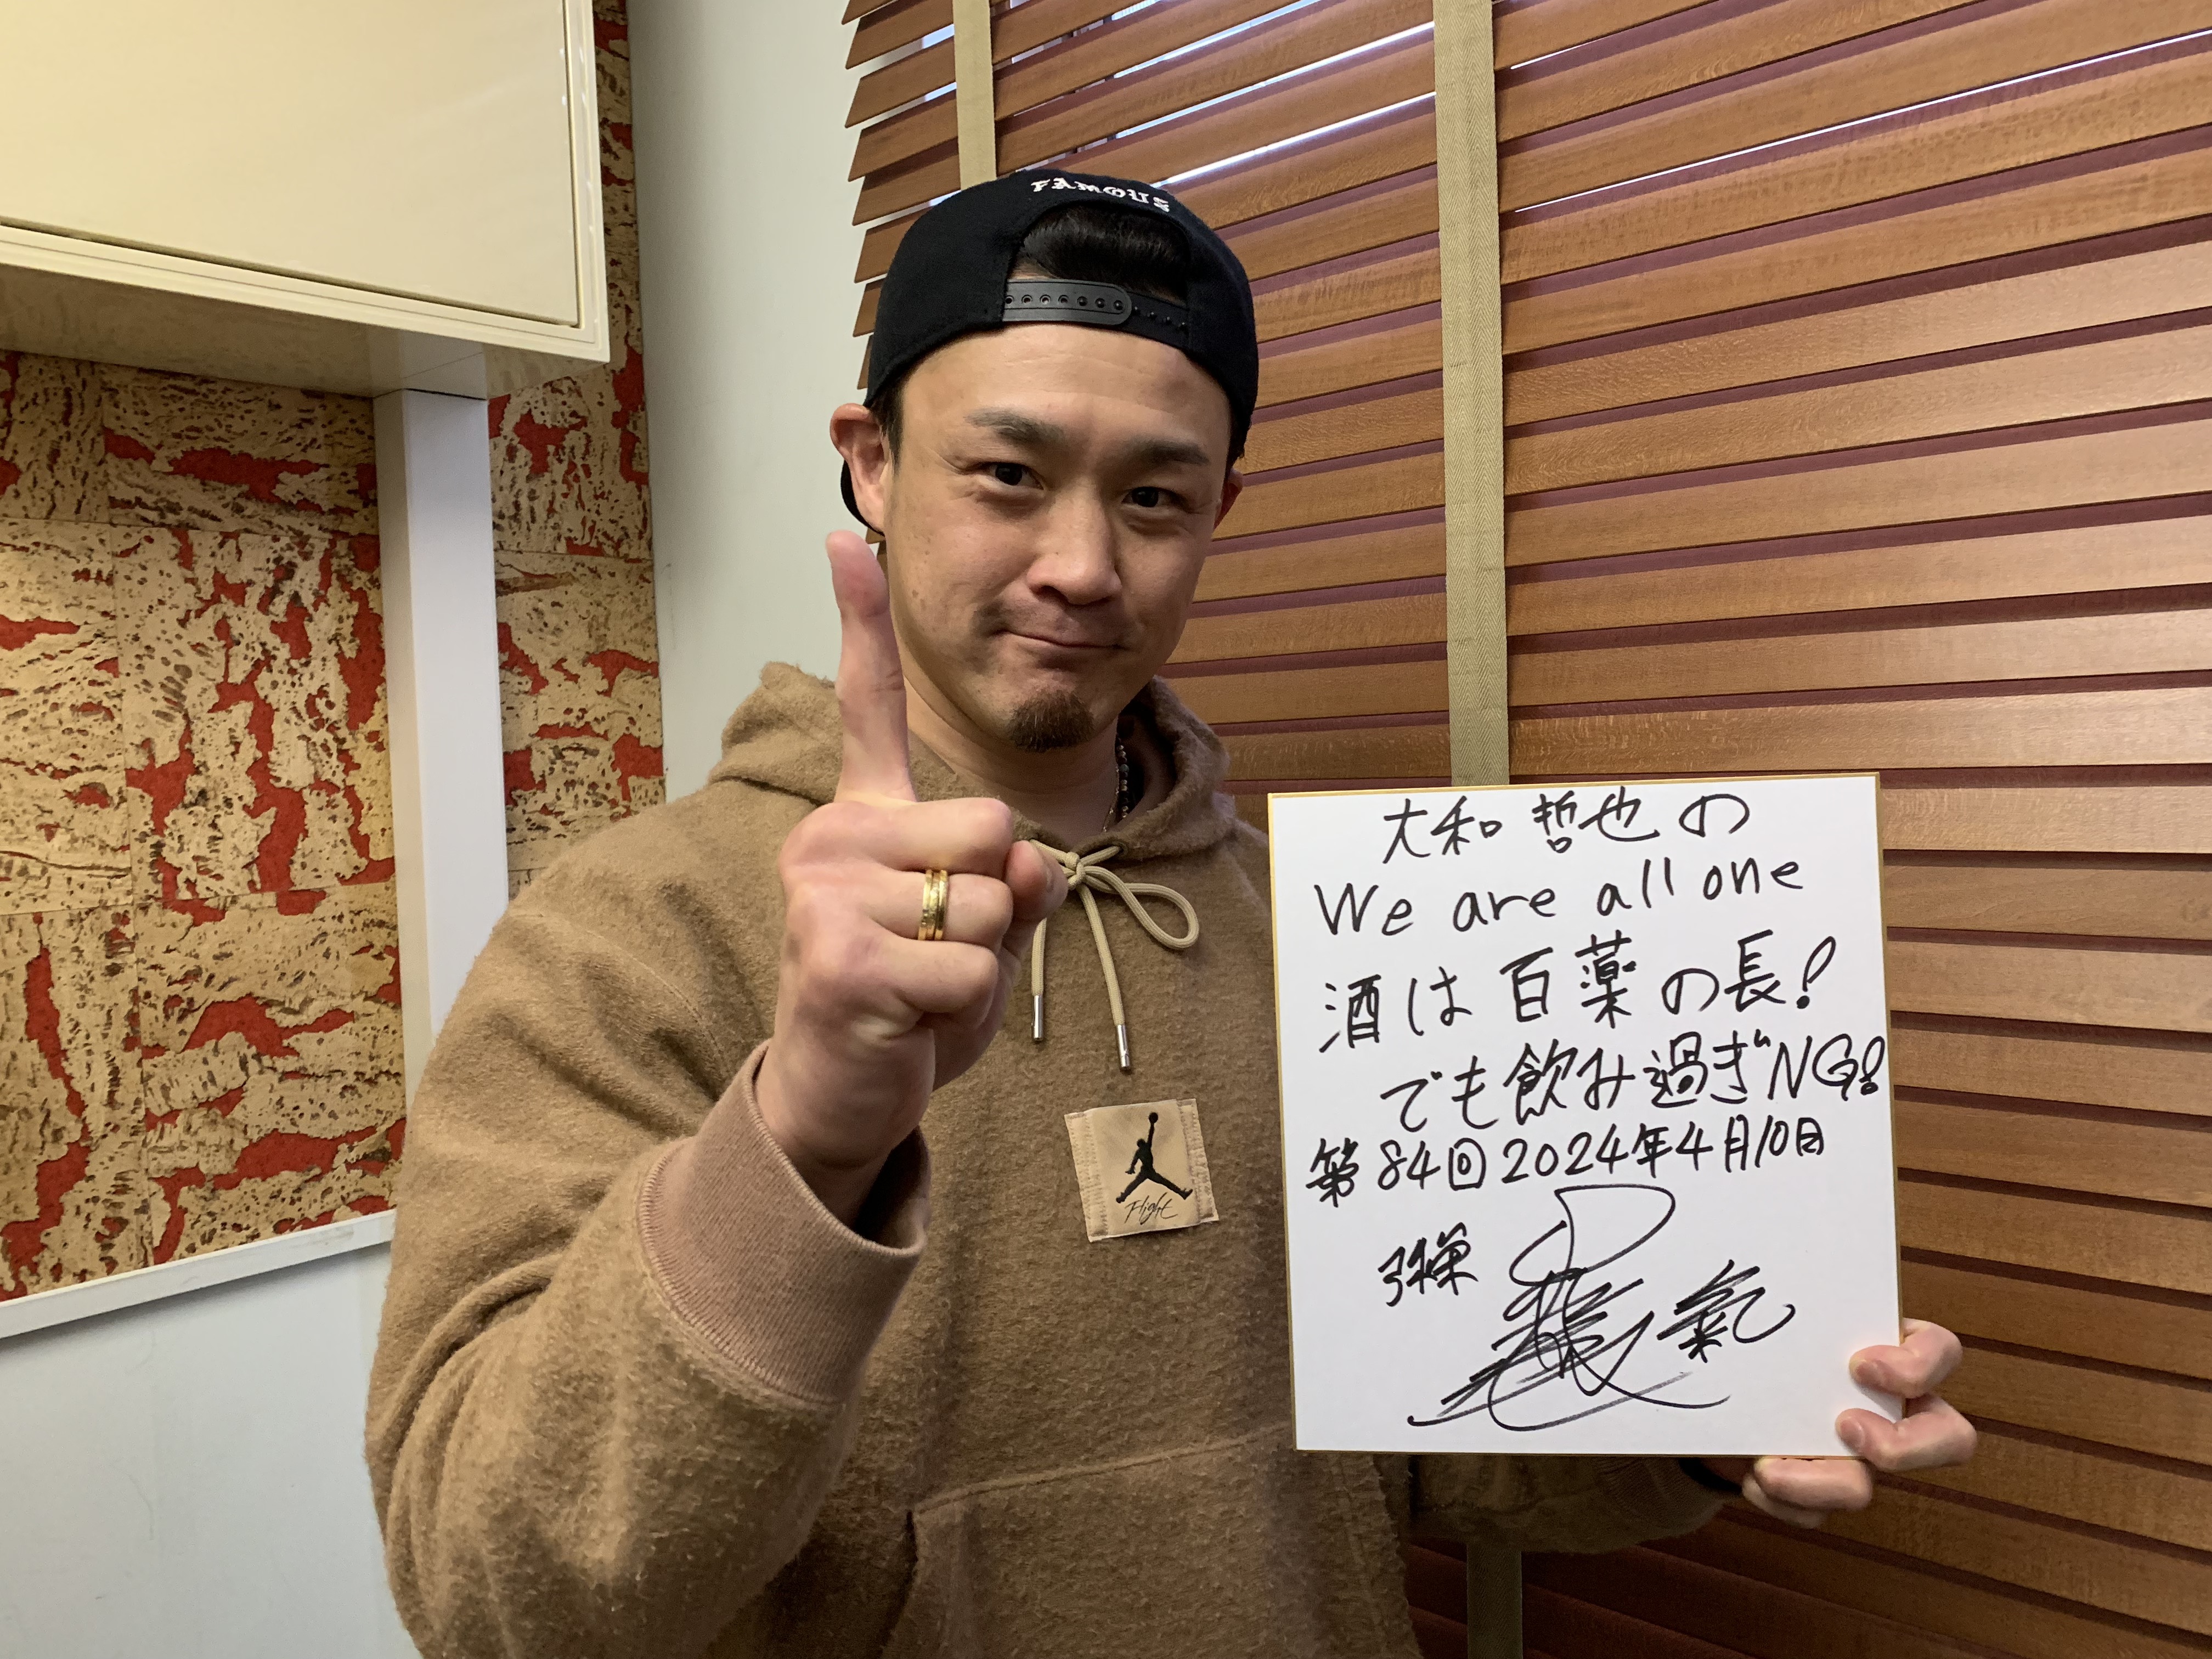 FAMOUS
大和哲也の
We are all one
酒は百薬の長!
でも飲み過ぎNG!
第84回2024年4月10日
氣
Flight